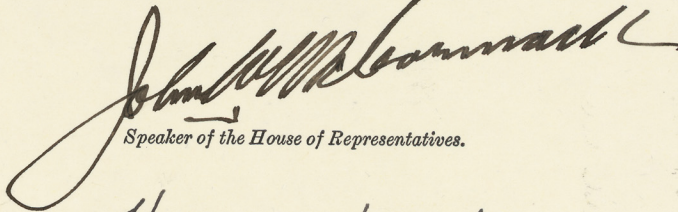 John W McCormack
Speaker of the House of Representatives.